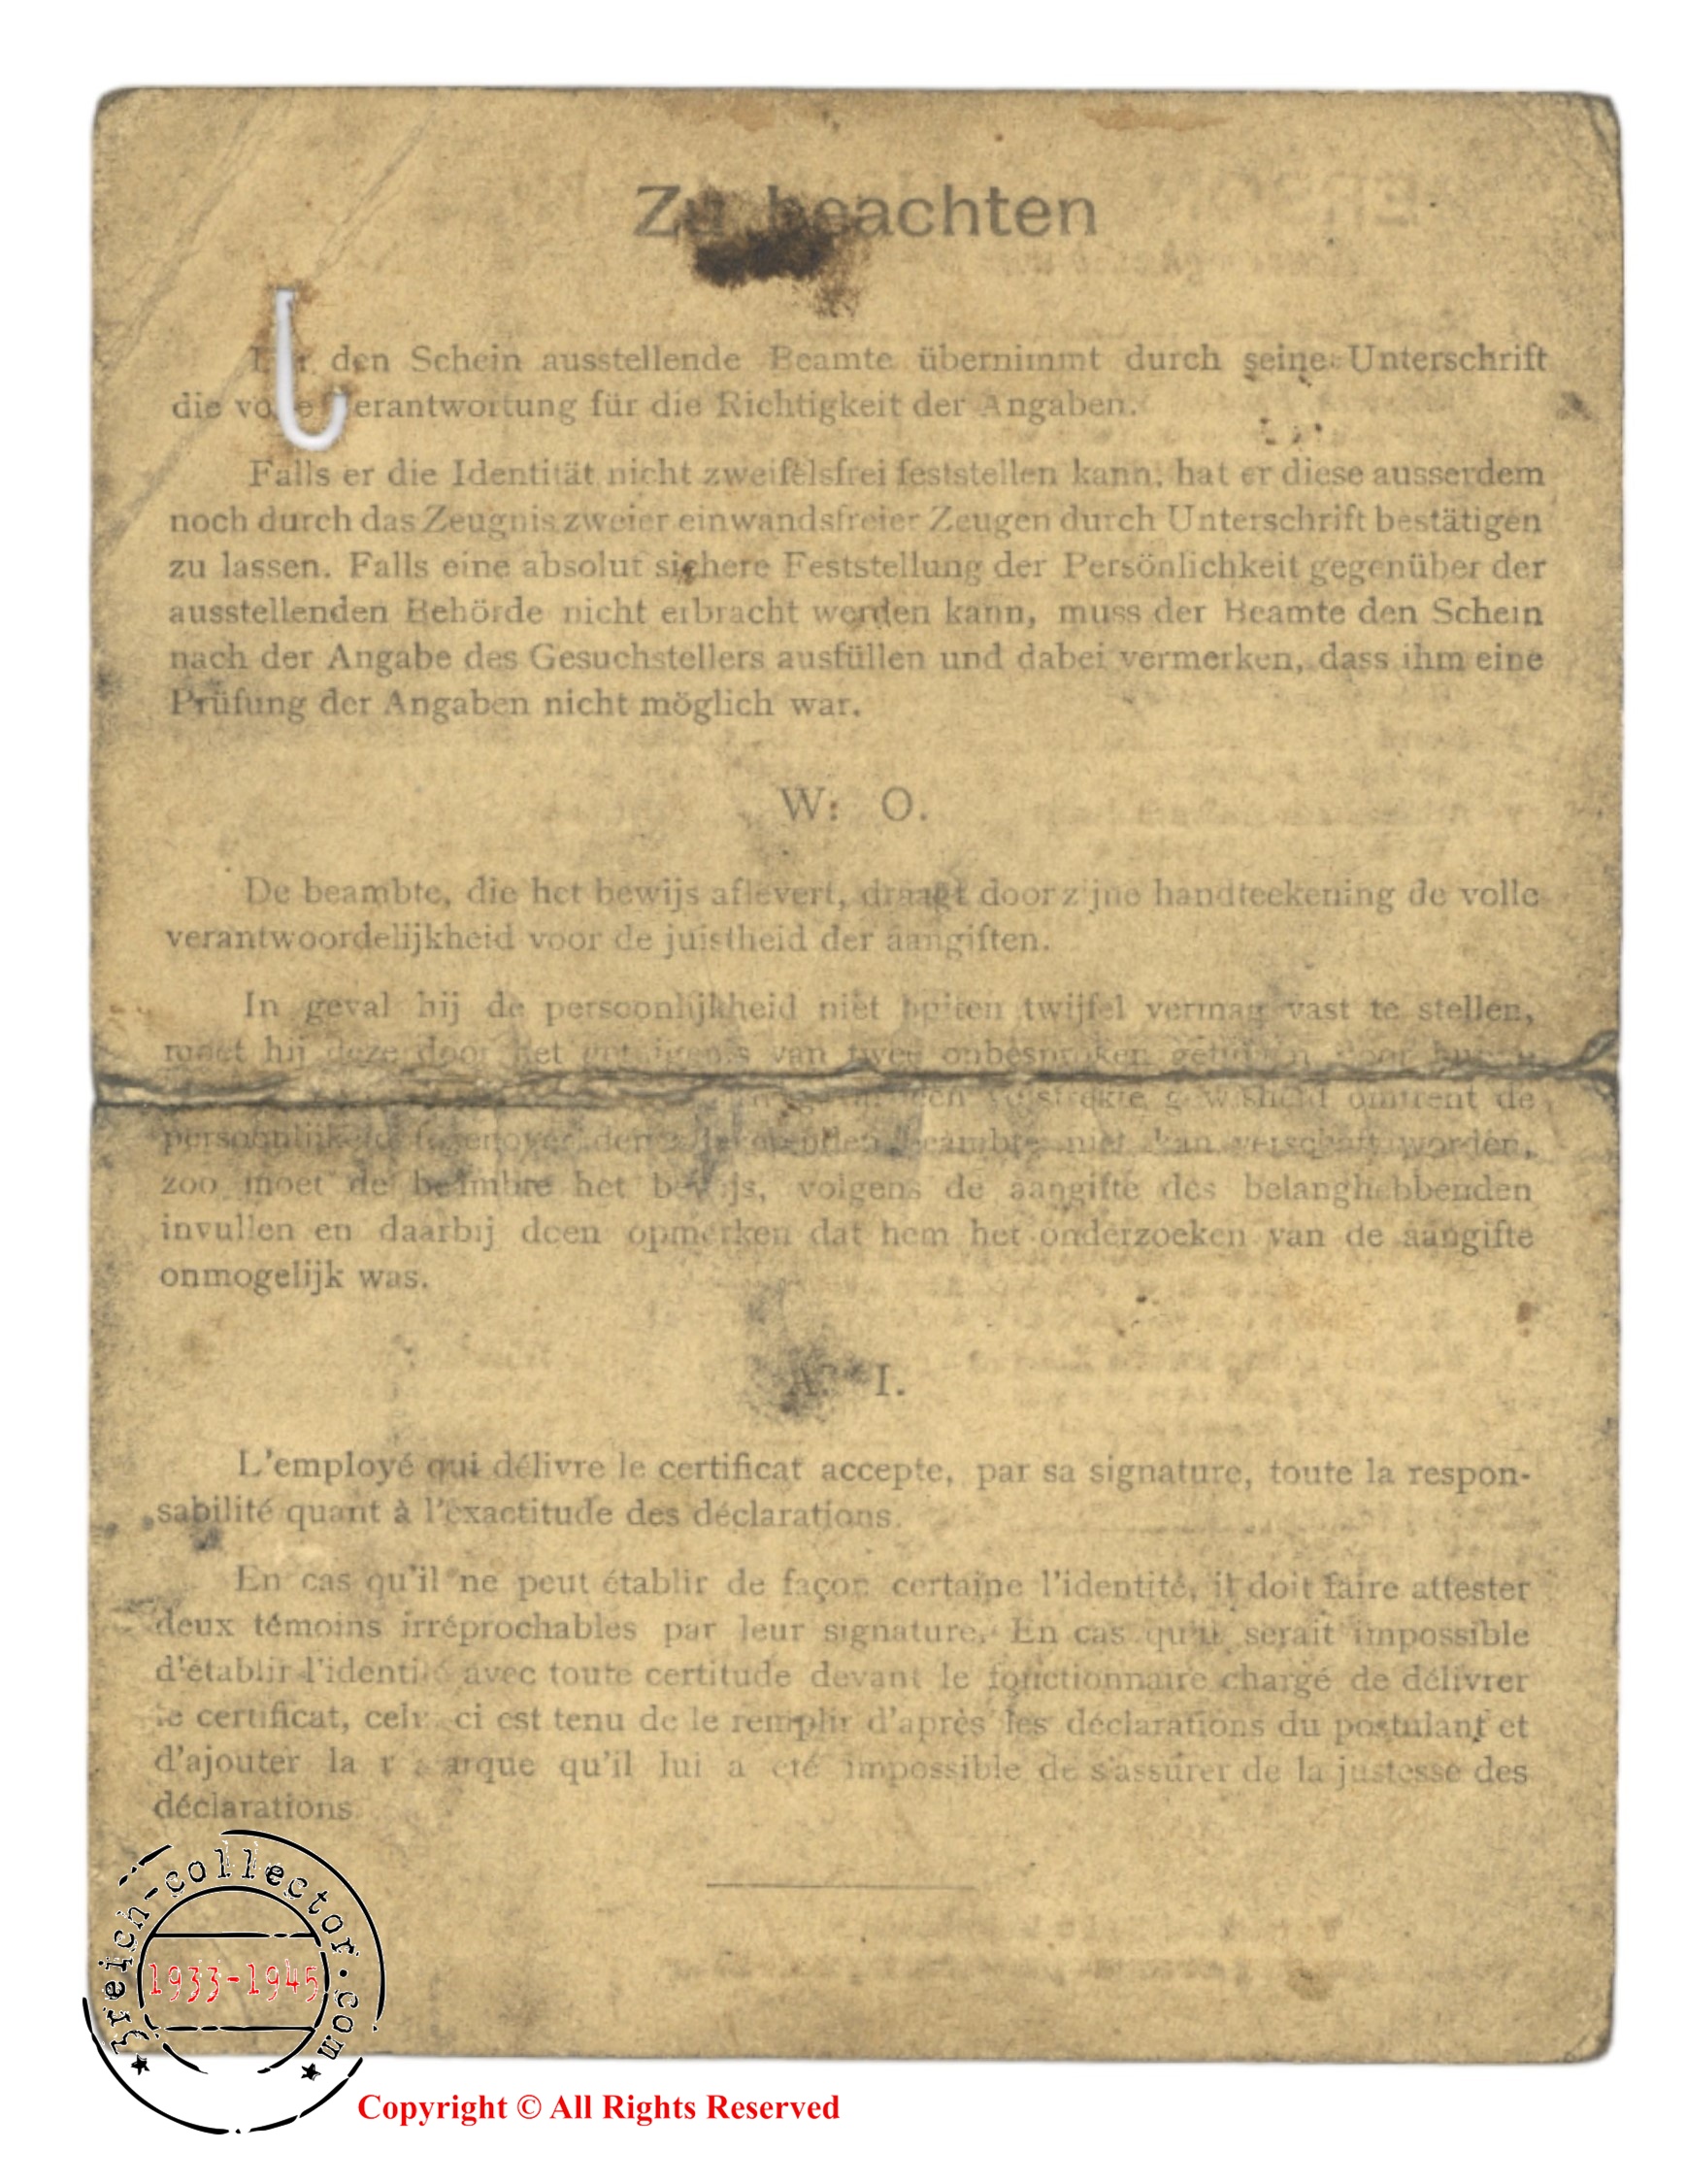 Zu beachten
den Schein ausstellende Beamte übernimmt durch seine Unterschrift
die volle Verantwortung für die Richtigkeit der Angaben.
Falls er die Identität nicht zweifelsfrei feststellen kann, hat er diese ausserdem
noch durch das Zeugnis zweier einwandsfreier Zeugen durch Unterschrift bestätigen
zu lassen. Falls eine absolut sichere Feststellung der Persönlichkeit gegenüber der
ausstellenden Behörde nicht erbracht werden kann, muss der Beamte den Schein
nach der Angabe des Gesuchstellers ausfüllen und dabei vermerken, dass ihm eine
Prüfung der Angaben nicht möglich war.
W. O.
De beambte, die het bewijs aflevert, draagt door zijne handteekening de volle
verantwoordelijkheid voor de juistheid der aangiften.
In geval hij de persoonlijkheid niet buiten twijfel vermag vast te stellen,
moet hij deze door het van twee onbesproken
omtrent de
persoonlijkheid tegenover den beambte niet kan verschaft worden,
zoo moet de beambte het bewijs, volgens de aangifte des belanghebbenden
invullen en daarbij doen opmerken dat hem het onderzoeken van de aangifte
onmogelijk was.
A. I.
L'employé qui délivre le certificat accepte, par sa signature, toute la respon-
sabilité quant à l'exactitude des déclarations.
En cas qu'il ne peut établir de façon certaine l'identité, il doit faire attester
deux témoins irréprochables par leur signature. En cas qu'il serait impossible
d'établir l'identité avec toute certitude devant le fonctionnaire chargé de délivrer
le certificat, celui-ci est tenu de le remplir d'après les déclarations du postulant et
d'ajouter la remarque qu'il lui a été impossible de s'assurer de la justesse des
déclarations.
3reich-collector.com
1933-1945
Copyright © All Rights Reserved